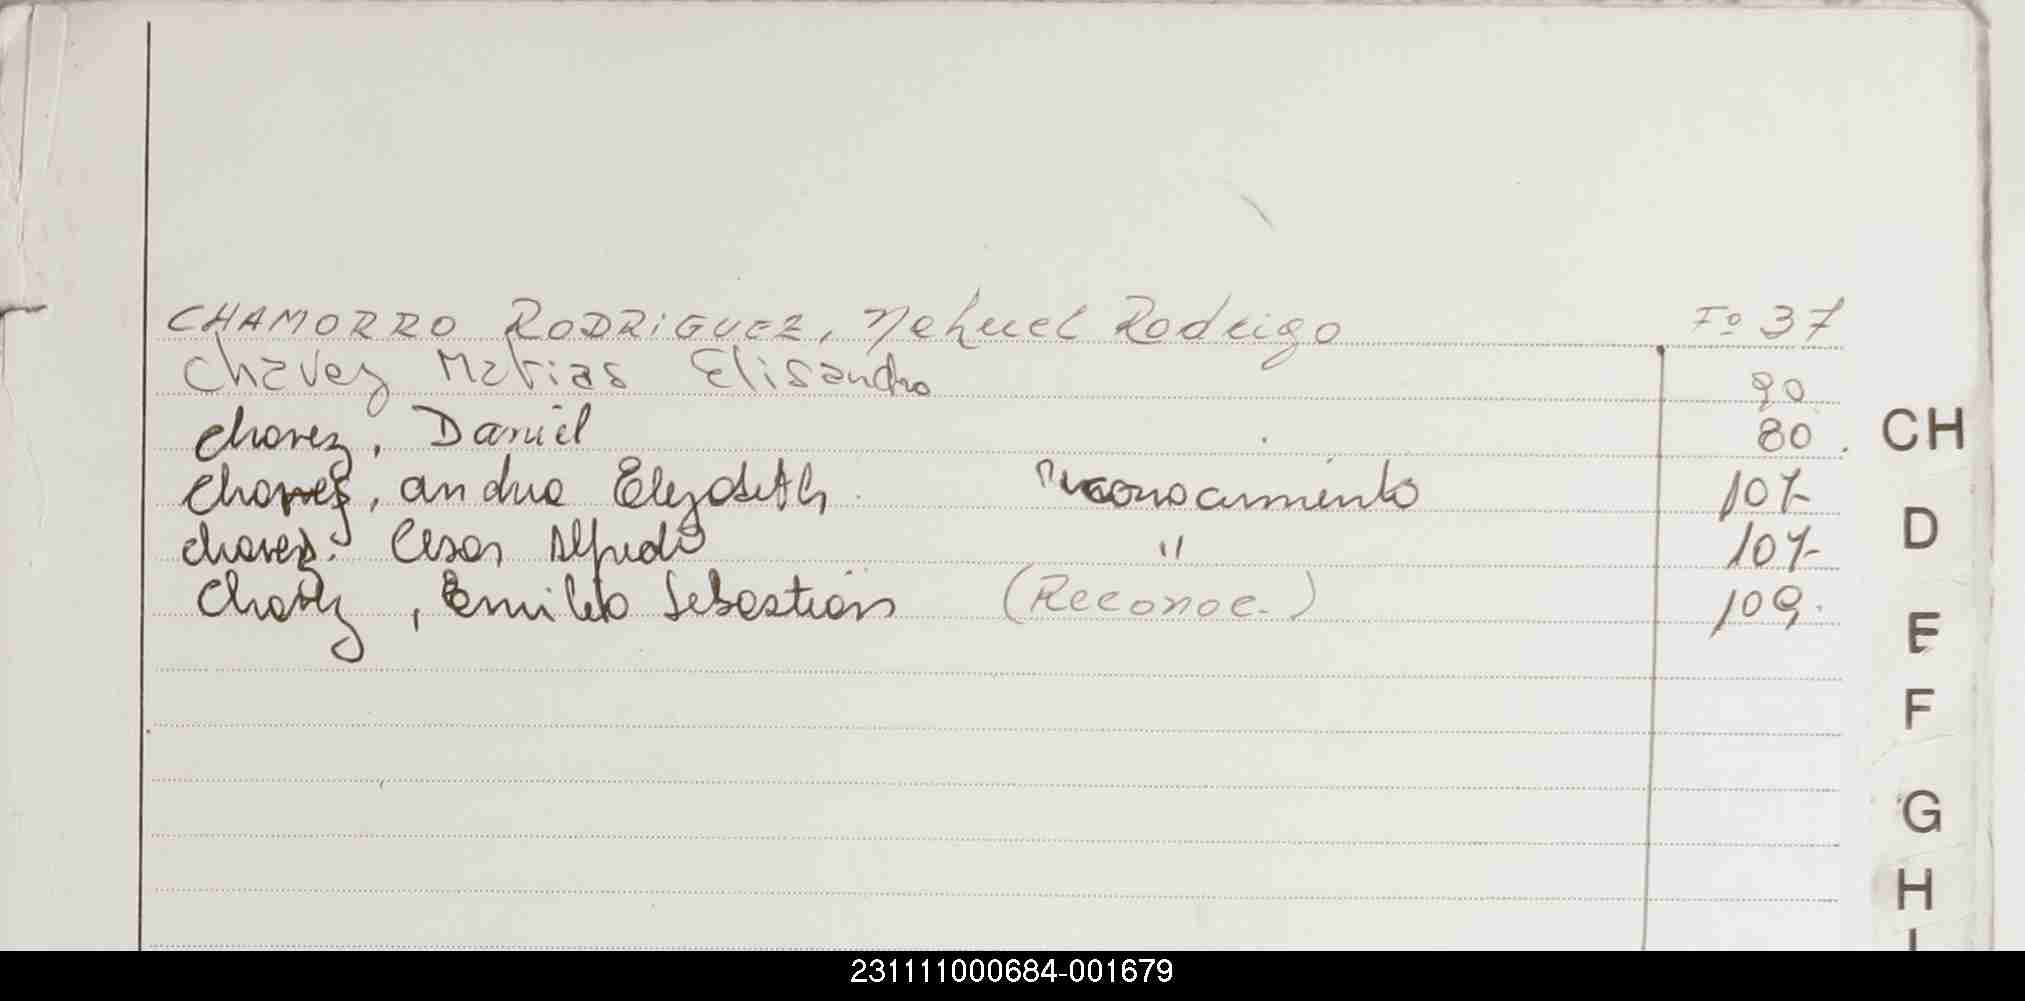 CHAMORRO RODRIGUEZ, Nehuel Rodrigo Fº 37
Chavez Matias Elisandro 90
Chavez, Daniel 80
CH
Chavez, Elizabeth reconocimiento 107
D
Chavez. Cesar Alfredo " 107
Chavez, Emilio Sebastián (Reconoc.) 109
E
F
G
H
I
231111000684-001679